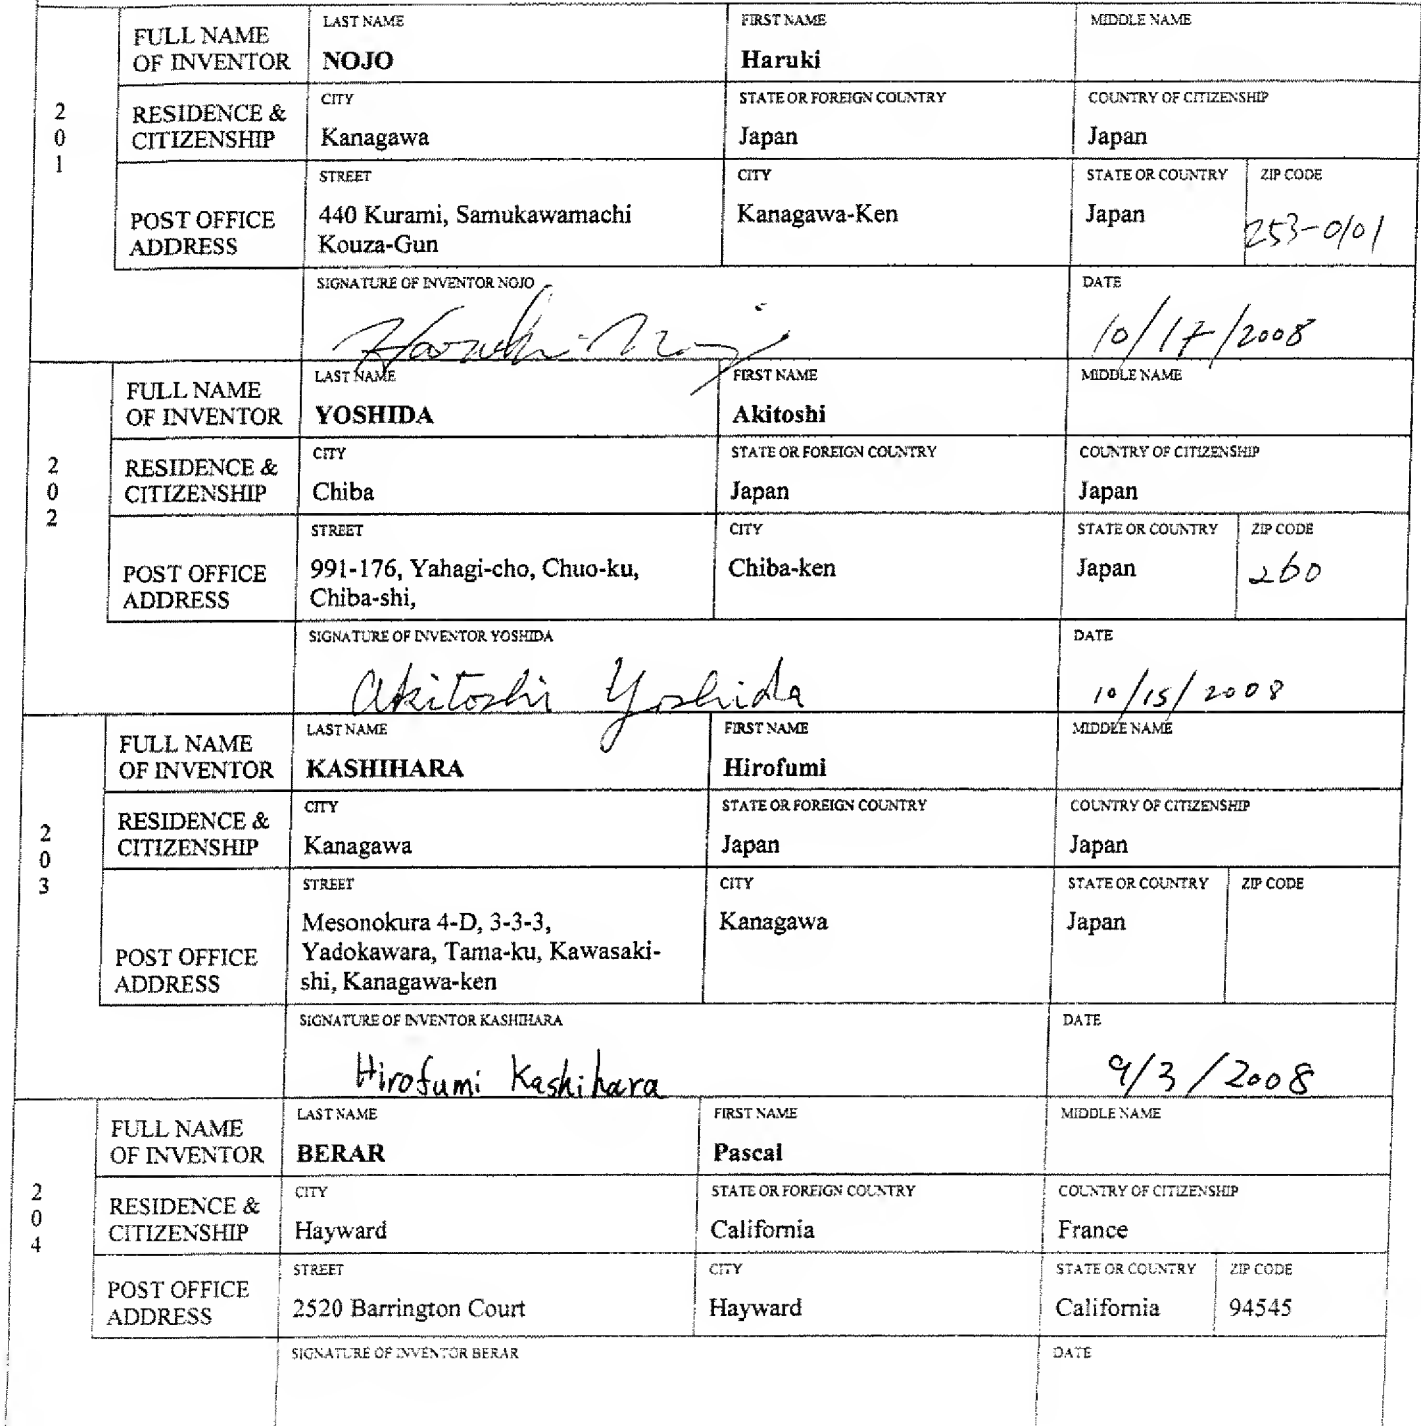 FULL NAME OF INVENTOR
LAST NAME
NOJO
FIRST NAME
Haruki
MIDDLE NAME
201
RESIDENCE & CITIZENSHIP
CITY
Kanagawa
STATE OR FOREIGN COUNTRY
Japan
COUNTRY OF CITIZENSHIP
Japan
POST OFFICE ADDRESS
STREET
440 Kurami, Samukawamachi
Kouza-Gun
CITY
Kanagawa-Ken
STATE OR COUNTRY
Japan
ZIP CODE
253-0101
SIGNATURE OF INVENTOR NOJO
Haruki Nojo
DATE
10/17/2008
FULL NAME OF INVENTOR
LAST NAME
YOSHIDA
FIRST NAME
Akitoshi
MIDDLE NAME
202
RESIDENCE & CITIZENSHIP
CITY
Chiba
STATE OR FOREIGN COUNTRY
Japan
COUNTRY OF CITIZENSHIP
Japan
POST OFFICE ADDRESS
STREET
991-176, Yahagi-cho, Chuo-ku,
Chiba-shi,
CITY
Chiba-ken
STATE OR COUNTRY
Japan
ZIP CODE
260
SIGNATURE OF INVENTOR YOSHIDA
Akitoshi Yoshida
DATE
10/15/2008
FULL NAME OF INVENTOR
LAST NAME
KASHIHARA
FIRST NAME
Hirofumi
MIDDLE NAME
203
RESIDENCE & CITIZENSHIP
CITY
Kanagawa
STATE OR FOREIGN COUNTRY
Japan
COUNTRY OF CITIZENSHIP
Japan
POST OFFICE ADDRESS
STREET
Mesonokura 4-D, 3-3-3,
Yadokawara, Tama-ku, Kawasaki-
shi, Kanagawa-ken
CITY
Kanagawa
STATE OR COUNTRY
Japan
ZIP CODE
SIGNATURE OF INVENTOR KASHIHARA
Hirofumi Kashihara
DATE
9/3/2008
FULL NAME OF INVENTOR
LAST NAME
BERAR
FIRST NAME
Pascal
MIDDLE NAME
204
RESIDENCE & CITIZENSHIP
CITY
Hayward
STATE OR FOREIGN COUNTRY
California
COUNTRY OF CITIZENSHIP
France
POST OFFICE ADDRESS
STREET
2520 Barrington Court
CITY
Hayward
STATE OR COUNTRY
California
ZIP CODE
94545
SIGNATURE OF INVENTOR BERAR
DATE